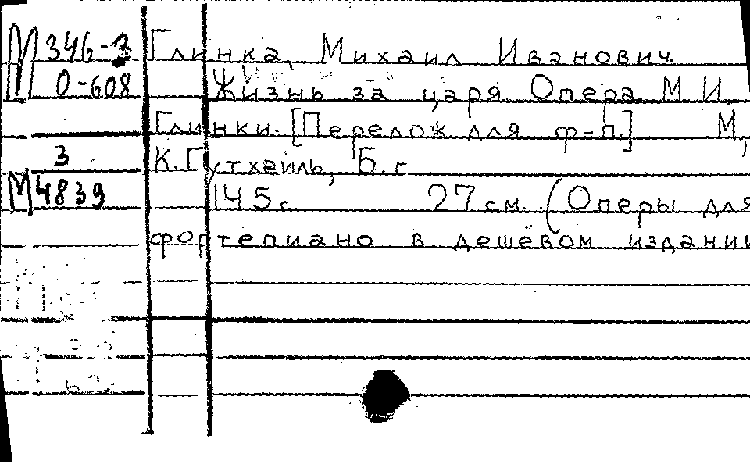 М 346-3 Глинка, Михаил Иванович
О-608 Жизнь за царя Опера М.И.
Глинки. [Перелож. для ф-п.] М.,
3 К. Гутхейль, Б.г.
М 4839 145 с. 27 см. (Оперы для
фортепиано в дешёвом издании